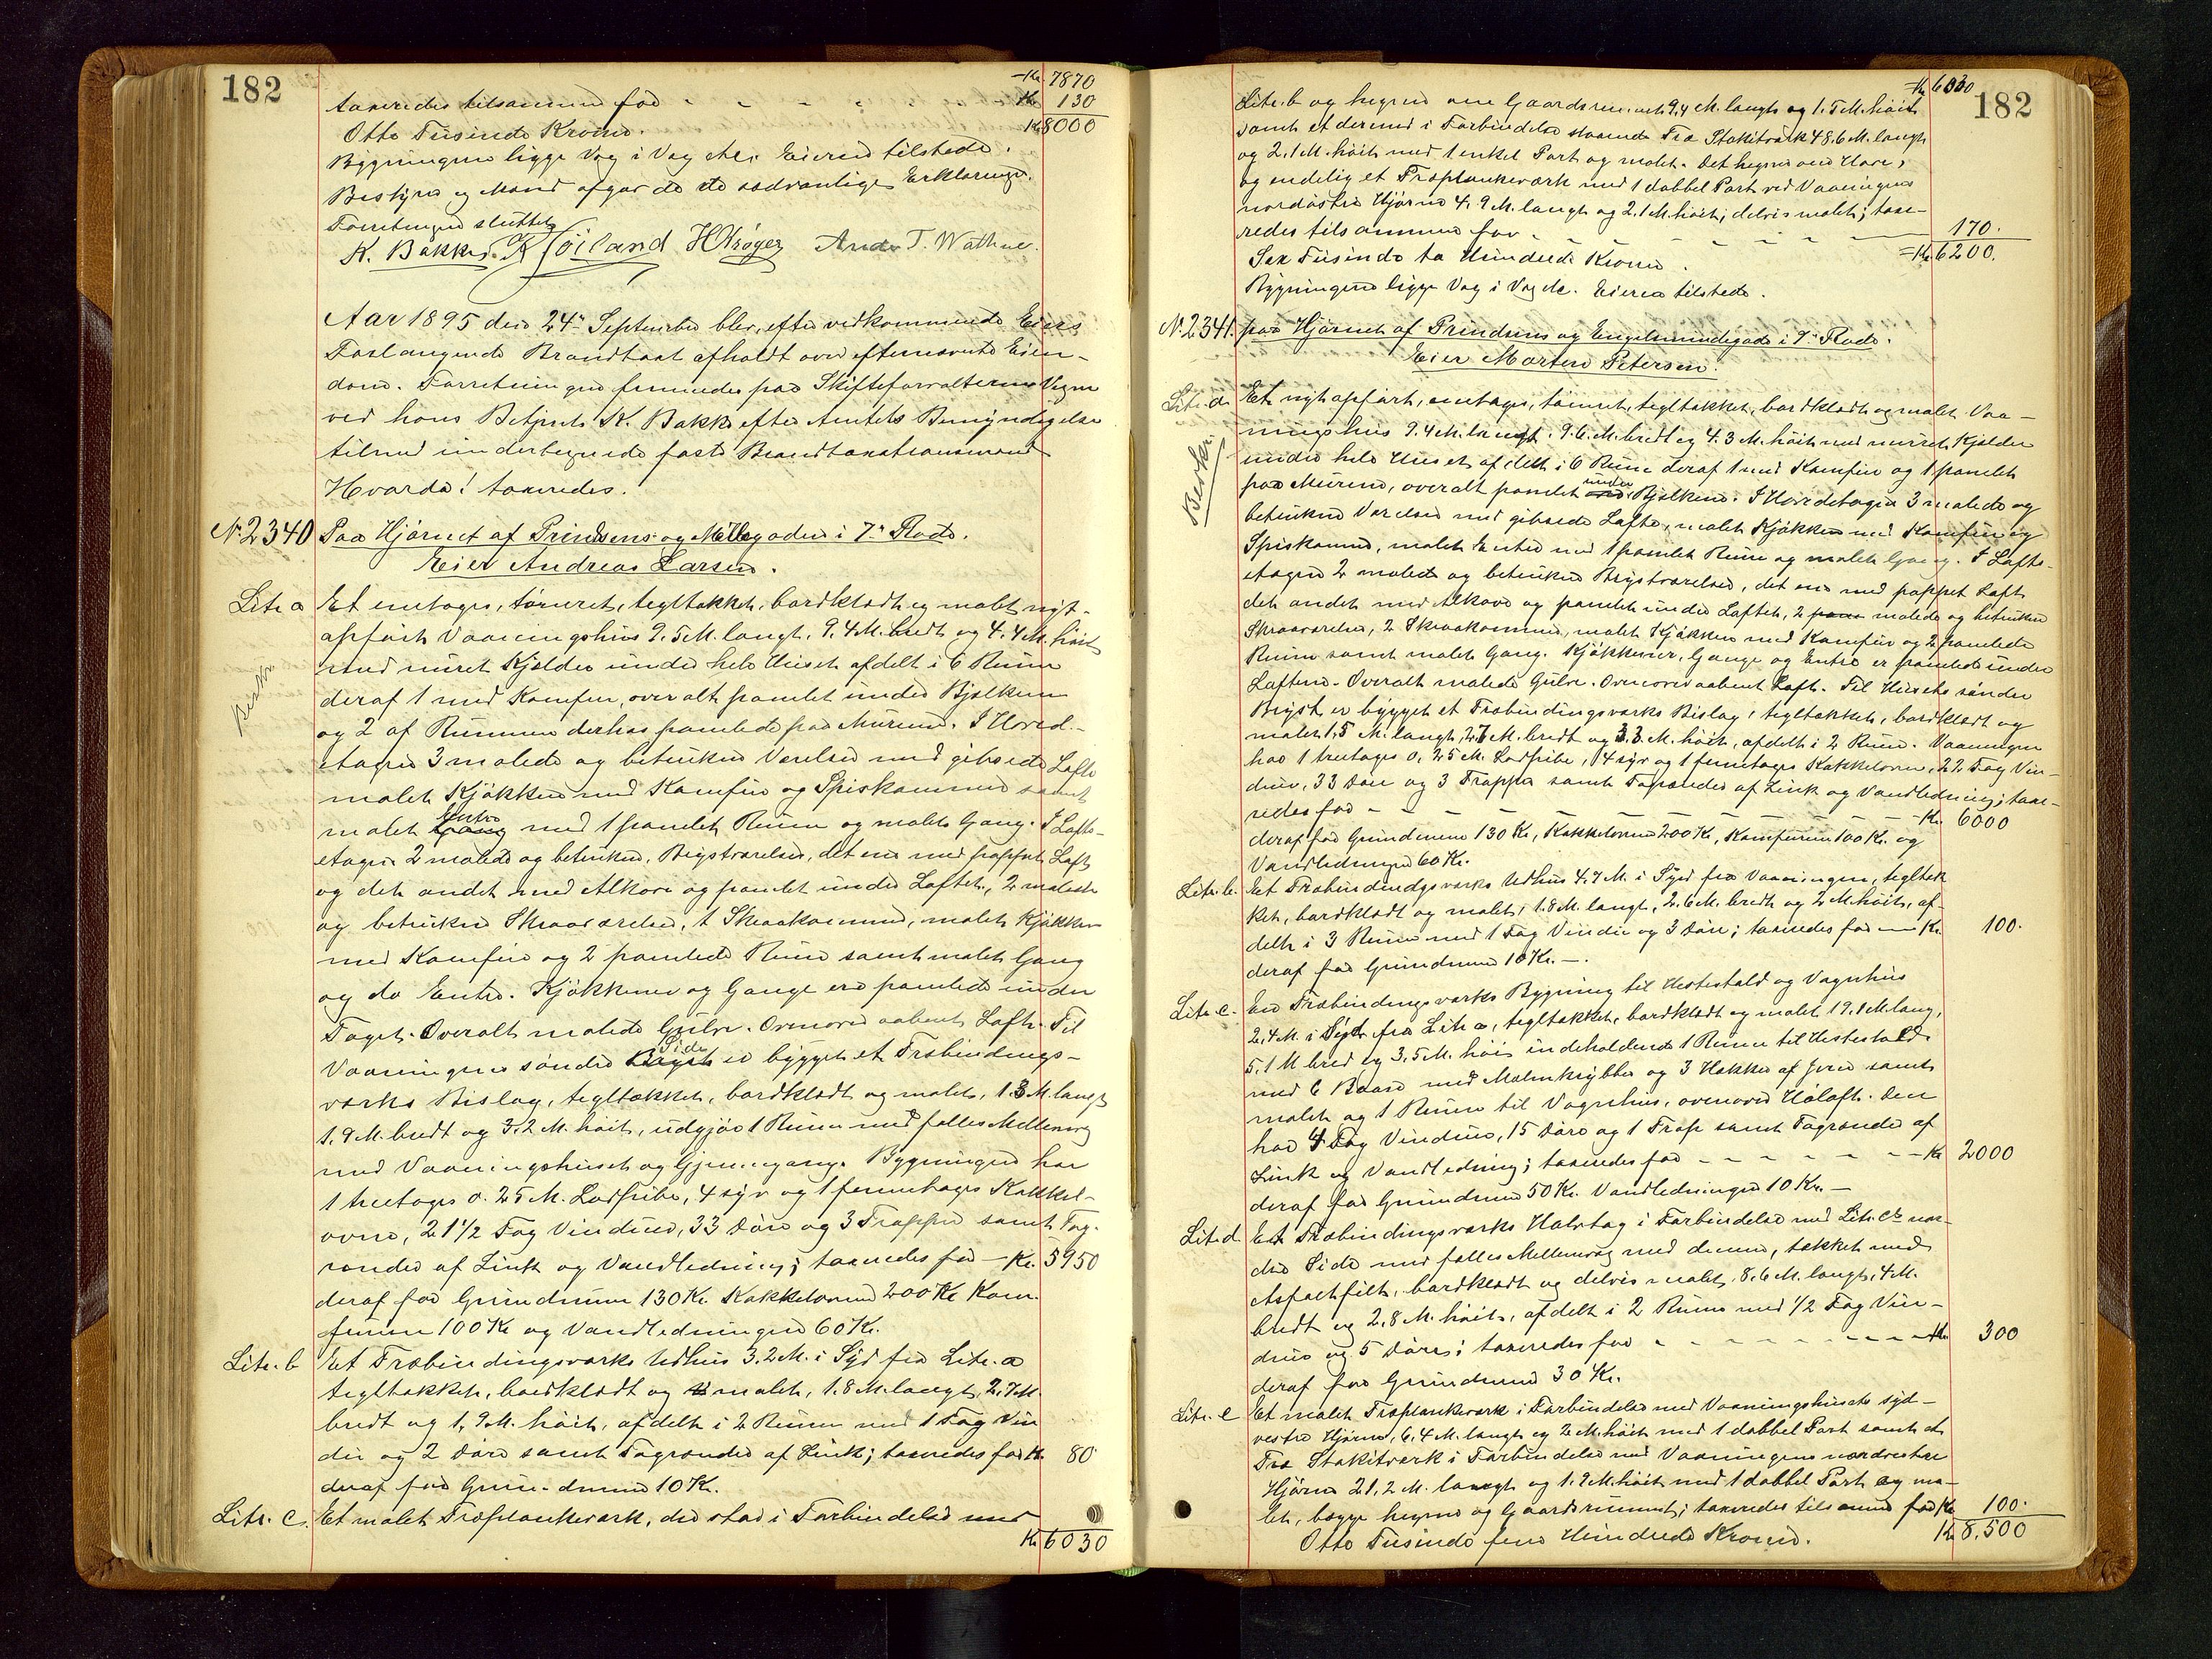 182
Kr. 7870
taxeredes tilsammen for - - - - - Kr. 130
Otto Tusinde Kroner. Kr 8000
Bygningene ligge Væg i Væg etc. Eieren tilstede.
Bestyrer og Mænd afgav de sædvanlige Erklæringer.
Forretningen sluttet
K. Bakke. K Höiland HKrøger Andr. T. Wathne.
Aar 1895 den 24de September blev, efter vedkommende Eiers
Forlangende Brandtaxt afholdt over efternævnte Eien-
dom. Forretningen fremmedes paa Skifteforvalterens Vegne
ved hans Betjent K. Bakke efter Amtets Bemyndigelse
tilmed undertegnede faste Brandtaxationsmænd
Hvorda! taxeredes.
No. 2340 Paa Hjørnet af Prindsens- og Møllegaden i 7de Rode.
Eier Andreas Larsen.
Litr. a Et enetages, tømret, tegltækket, bordklædt og malet nyt-
opført Vaaningshus 9.5 M. langt, 9.4 M. bredt og 4.4 M. høit
med muret Kjælder under hele Huset afdelt i 6 Rum
deraf 1 med Komfur, overalt panelet under Bjelkene
og 2 af Rummene derhos panelede paa Murene. I Hoved-
etagen 3 malede og betrukne Værelser med gibsede Lofte
malet Kjøkken med Komfur og Spiskammer samt
malet Gang Entre med 1 panelet Rum og malet Gang. I Lofts-
etagen 2 malede og betrukne, Brystværelser, det ene med pappet Loft
og det andet med Alkove og panelet under Loftet, 2 malede
og betrukne Skraaværelser, 1 Skraakammer, malet Kjøkken
med Komfur og 2 panelede Rum samt malet Gang
og do Entre. Kjøkkener og Gange ere panelede under
Taget. Overalt malede Gulve. Ovenover aabent Loft. Til
Vaaningens søndre Bryst Side er bygget et Træbindings-
værks Bislag, tegltækket, bordklædt og malet, 1.3 M. langt
1.9 M. bredt og 3.2 M. høit, udgjør 1 Rum med fælles Mellemvæg
med Vaaningshuset og Gjennemgang. Bygningen har
1 treetages 0.25 M. Ladpibe, 4 syv og 1 femetages Kakkel-
ovne, 21 1/2 Fag Vinduer, 33 Døre og 3 Trapper samt Tag-
render af Zink og Vandledning; taxeredes for - Kr. 5950
deraf for Grundmur 130 Kr. Kakkelovne 200 Kr Kom-
furene 100 Kr og Vandledningen 60 Kr.
Litr. b Et Træbindingsværks Udhus 3.2 M. i Syd fra Litr. a
tegltækket, bordklædt og malet, 1.8 M. langt, 2.7 M.
bredt og 1.9 M. høit, afdelt i 2 Rum med 1 Fag Vin
due og 2 Døre samt Tagrender af Zink; taxeredes for Kr. 80
deraf for Grundmur 10 Kr.
Litr. c. Et malet Træplankeværk, der staar i Forbindelse med
Kr 6030
Beskr.
182
Kr 6030
Litr. b og hegner om Gaardsrummet 9.4 M. langt og 1.5 M. høit
samt et dermed i Forbindelse staaende Træ Stakitværk 48.6 M. langt
og 2.1 M. høit med 1 enkel Port og malet. Det hegner om Have,
og endelig et Træplankeværk med 1 dobbel Port ved Vaaningens
nordøstre Hjørne 4.9 M. langt og 2.1 M. høit, delvis malet; taxe-
redes tilsammen for - - - - - - - 170.
Sex Tusinde to Hundrede Kroner. Kr. 6200.
Bygningene ligge Væg i Væg etc. Eieren tilstede.
No. 2341. paa Hjørnet af Prindsens og Engelsmindegade i 7de Rode.
Eier Morten Petersen.
Litr. a. Et nyt opført, enetages, tømret, tegltækket, bordklædt og malet Vaa-
ningshus 9.4 M. langt, 9.6 M. bredt og 4.3 M. høit med muret Kjælder
under hele Huset afdelt i 6 Rum deraf 1 med Komfur og 1 panelet
paa Murene, overalt panelet under Bjelkene. I Hovedetagen 3 malede og
betrukne Værelser med gibsede Lofte, malet Kjøkken med Komfur og
Spiskammer, malet Entre med 1 panelet Rum og malet Gang. I Lofts-
etagen 2 malede og betrukne Brystværelser, det ene med pappet Loft
det andet med Alkove og panelet under Loftet, 2 malede og betrukne
Skraaværelser, 2 Skraakammer, malet Kjøkken med Komfur og 2 panelede
Rum samt malet Gang. Kjøkkener, Gange og Entre er panelede under
Loftene. Overalt malede Gulve. Ovenover aabent Loft. Til Husets søndre
Bryst er bygget et Træbindingsværks Bislag, tegltækket, bordklædt og
malet 1.5 M. langt, 2.7 M. bredt og 3.3 M. høit, afdelt i 2 Rum. Vaaningen
har 1 treetages 0.25 M. Ladpibe, 4 syv og 1 femetages Kakkelovne, 22 Fag Vin-
duer, 33 Døre og 3 Trapper samt Tagrender af Zink og Vandledning; taxe-
redes for - - - - - - - - - Kr. 6000
deraf for Grundmurene 130 Kr, Kakkelovne 200 Kr, Komfurene 100 Kr. og
Vandledningen 60 Kr.
Litr. b. Et Træbindingsværks Udhus 4.7 M. i Syd fra Vaaningen, tegltæk
ket, bordklædt og malet, 1.8 M. langt, 2.6 M. bredt og 2 M. høit, af-
delt i 3 Rum med 1 Fag Vindu og 3 Døre; taxeredes for - Kr. 100.
deraf for Grundmur 10 Kr. -.
Litr. c. En Træbindingsværks Bygning til Hestestald og Vognhus
2.4 M. i Syd fra Litr. a, tegltækket, bordklædt og malet 19.1 M. lang,
5.1 M bred og 3.5 M. høi indeholdende 1 Rum til Hestestald
med 6 Baase med Malmkrybber og 3 Hækker af Jern samt
malet og 1 Rum til Vognhus, ovenover Høloft. Den
har 4 Fag Vinduer, 15 Døre og 1 Trap samt Tagrender af
Zink og Vandledning; taxeredes for - - - - - - - Kr 2000
deraf for Grundmur 50 Kr. Vandledningen 10 Kr. -
Litr. d. Et Træbindingsværks Halvtag i Forbindelse med Litr. c's nor-
dre Side med fælles Mellemvæg med denne, tækket med
Asfaltfilt, bordklædt og delvis malet, 8.6 M. langt, 4 M.
bredt og 2.8 M. høit, afdelt i 2 Rum med 1/2 Fag Vin-
due og 5 Døre; taxeredes for - - - - - - - - Kr. 300
deraf for Grundmur 30 Kr.
Litr. e Et malet Træplankeværk i Forbindelse med Vaaningshusets syd-
vestre Hjørne, 6.4 M. langt og 2 M. høit med 1 dobbel Port samt et
Træ Stakitværk i Forbindelse med Vaaningens nordvestre
Hjørne 21.2 M. langt og 1.9 M. høit med 1 dobbel Port og ma-
let, begge hegne og Gaardsrummet; taxeredes tilsammen for Kr 100.
Otto Tusinde fem Hundrede Kroner. Kr 8.500
Beskr.